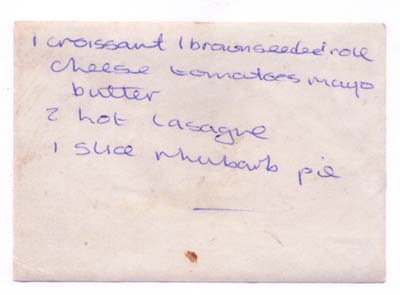 1 croissant 1 brownseeded roll
cheese tomatoes mayo
butter
2 hot lasagne
1 slice rhubarb pie